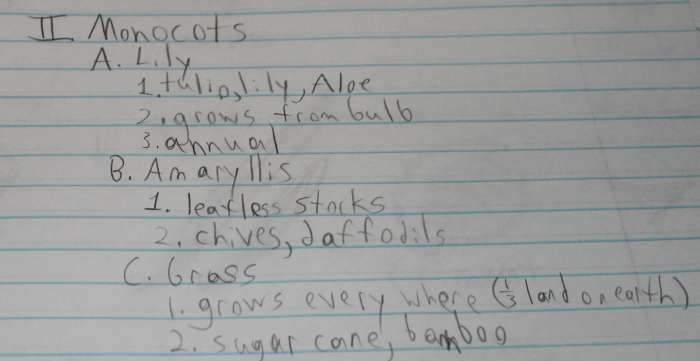 II Monocots
A. Lily
1. tulip, lily, Aloe
2. grows from bulb
3. annual
B. Amaryllis
1. leafless stocks
2. chives, daffodils
C. Grass
1. grows every where (1/3 land on earth)
2. sugar cane, bamboo